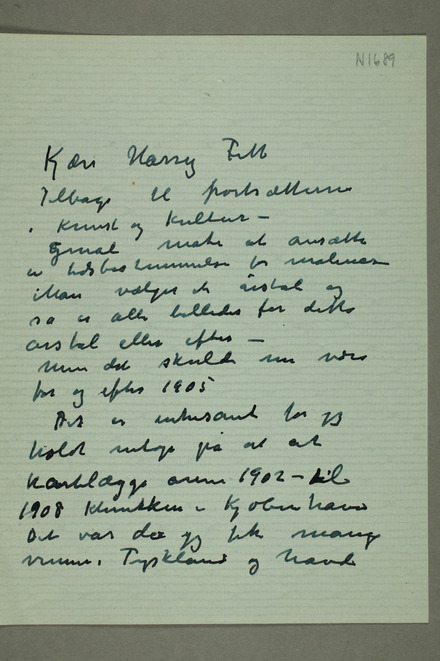 N1689
Kjære Harry Fett
Tilbage til portrætterne
i Kunst og Kultur –
Gmal måte at ansætte
en tidsbestemmelse for malerier
Man vælger et årstal og
så er alle billeder før dette
årstal eller efter –
Men det skulde nu være
før og efter 1905
Det er interesant for jeg
holdt netop på at at
kartlægge årene 1902 – til
1908 Klinikken i Kjøbenhavn
Det var da jeg fik mange
venner i Tyskland og havde